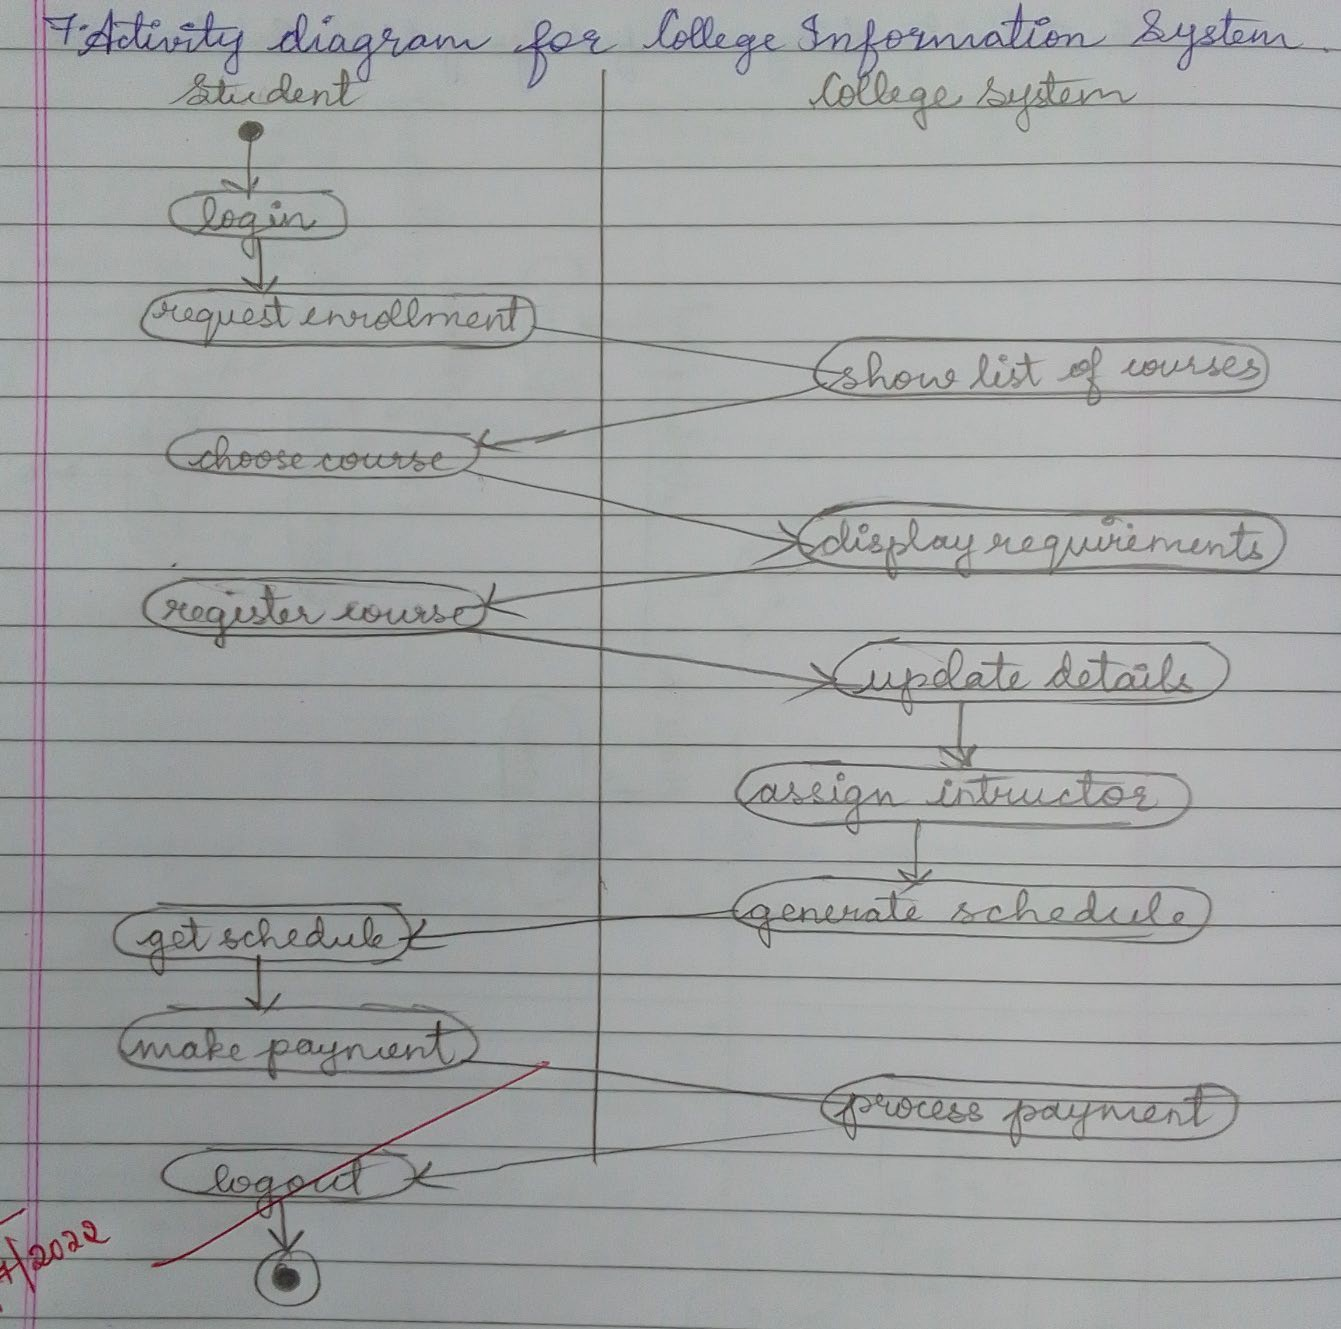 7. Activity diagram for College Information System.
Student
College System
login
request enrollment
show list of courses
choose course
display requirements
register course
update details
assign intructor
generate schedule
get schedule
make payment
process payment
logout
/2022